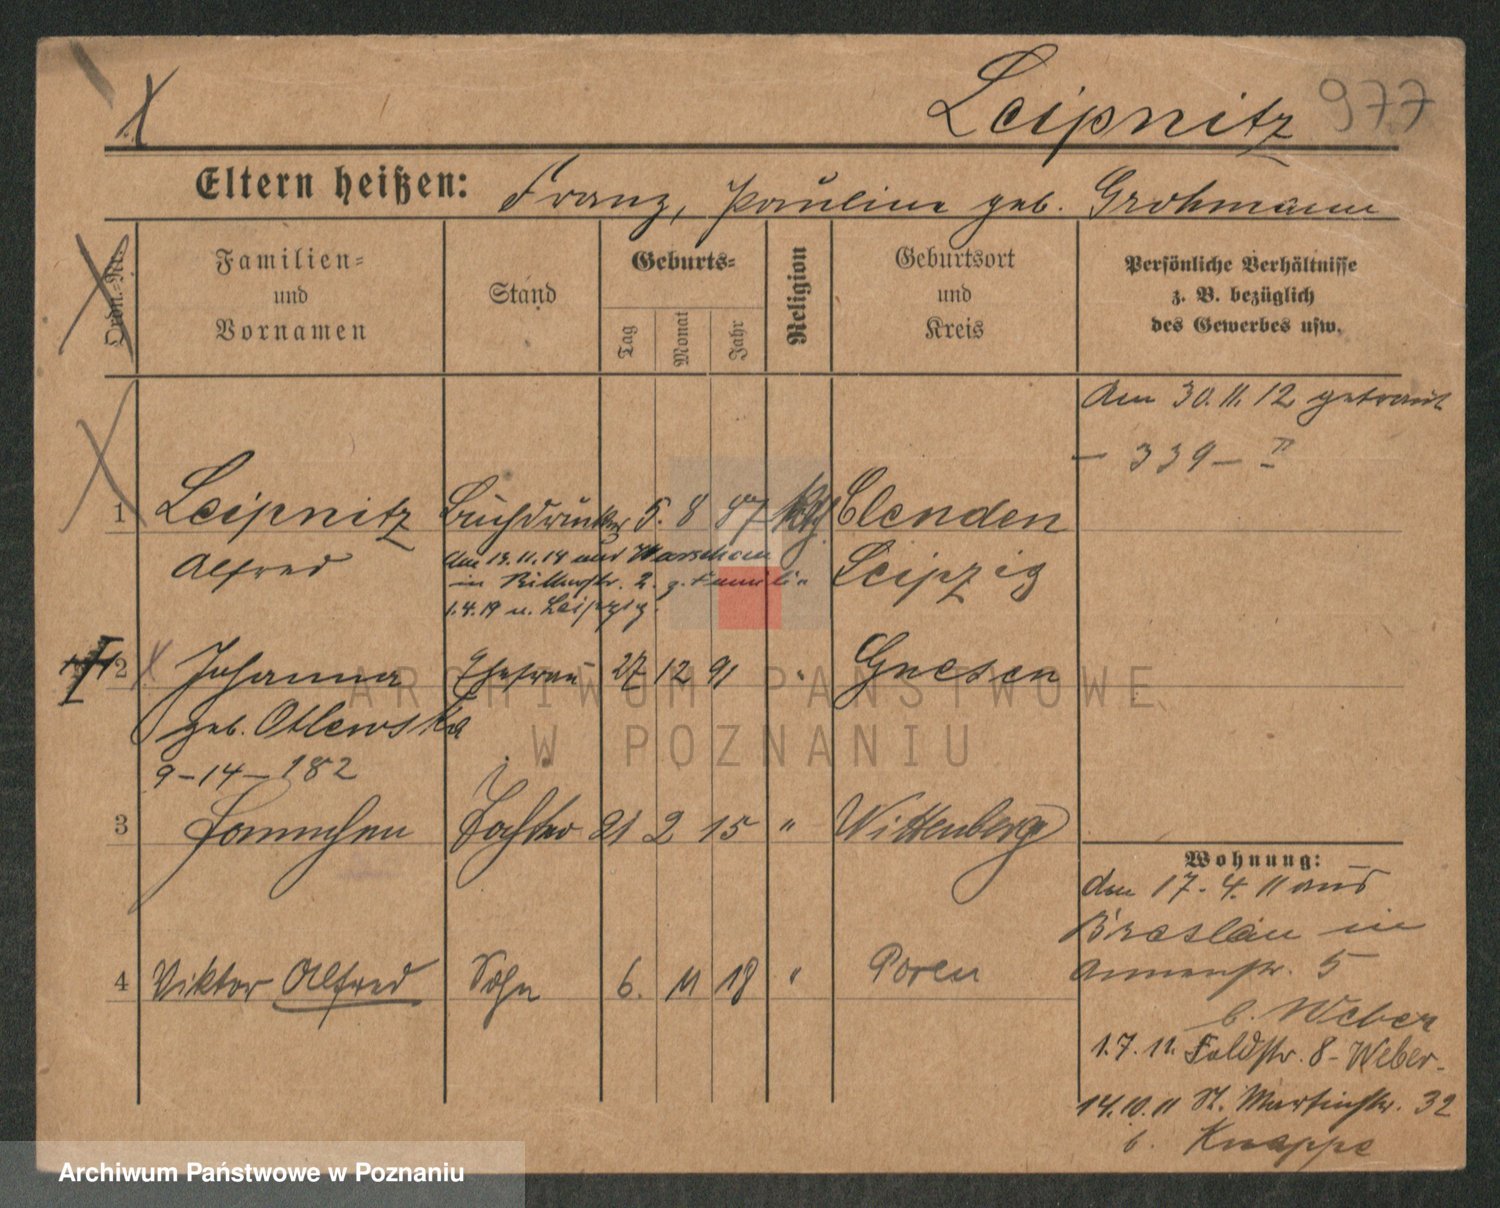 Leipnitz 977
Eltern heißen: Franz, Pauline geb. Grohmann
Ordn.-Nr.
Familien-
und
Vornamen
Stand
Geburts-
Tag
Monat
Jahr
Religion
Geburtsort
und
Kreis
Persönliche Verhältnisse
z. B. bezüglich
des Gewerbes usw.
Am 30.11.12 getraut
- 339 - II
1 Leipnitz Buchdrucker 5. 8 87 kth. Elenden
Alfred Leipzig
in Ritterstr. 2. z. Familie
1.4.19 n. Leipzig.
2 Johanna Ehefrau 27 12 91 " Gnesen
geb. Otlewska
9-14-182
3 Tochter 21 2 15 " Wittenberg
4 Viktor Alfred Sohn 6. 11 18 " Posen
Wohnung:
den 17.4.11 aus
Breslau in
Annenstr. 5
b. Weber
1.7.11. Feldstr. 8-Weber-
14.10.11 St. Martinstr. 32
b. Knappe
ARCHIWUM PAŃSTWOWE
W POZNANIU
Archiwum Państwowe w Poznaniu